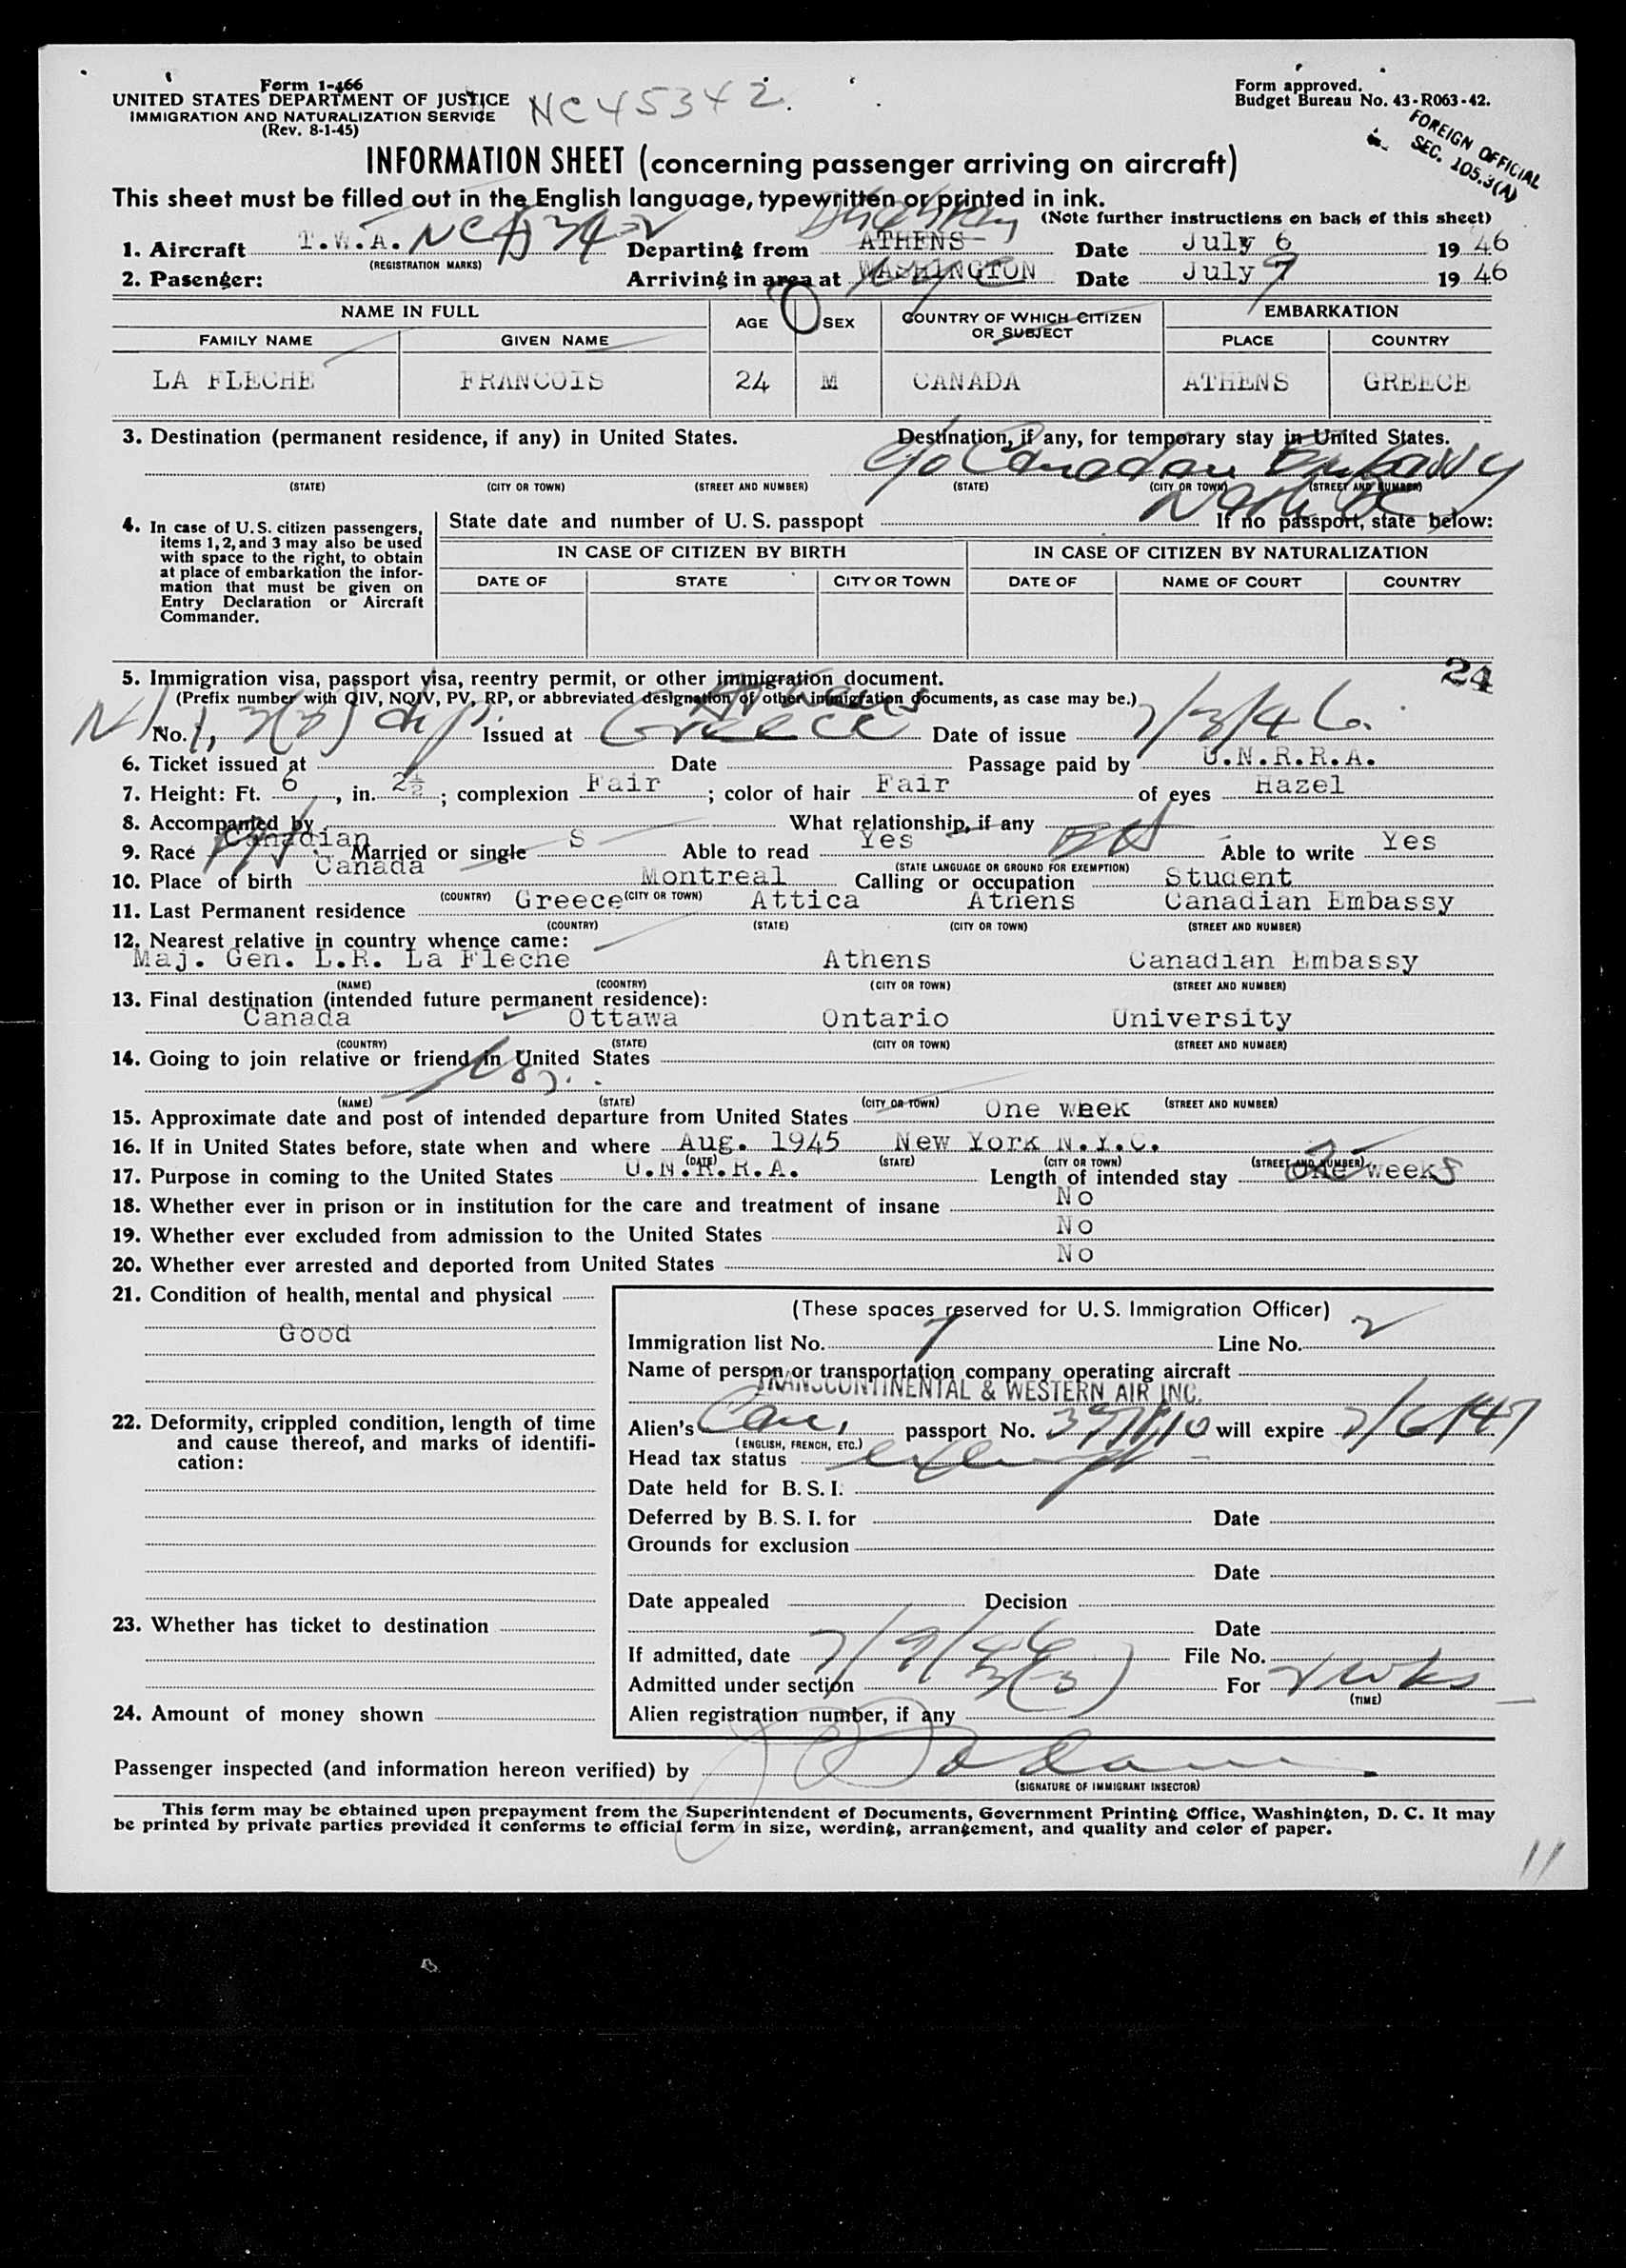 Form 1-466
UNITED STATES DEPARTMENT OF JUSTICE
IMMIGRATION AND NATURALIZATION SERVICE
(Rev. 8-1-45)
NC45342.
Form approved.
Budget Bureau No. 43-R063-42.
FOREIGN OFFICIAL
SEC. 105.3(A)
INFORMATION SHEET (concerning passenger arriving on aircraft)
This sheet must be filled out in the English language, typewritten or printed in ink.
(Note further instructions on back of this sheet)
1. Aircraft T.W.A. NC45342 Departing from ATHENS Date July 6 19 46
(REGISTRATION MARKS)
2. Pasenger: Arriving in area at WASHINGTON NYC Date July 7 19 46
NAME IN FULL AGE SEX COUNTRY OF WHICH CITIZEN OR SUBJECT EMBARKATION
FAMILY NAME GIVEN NAME PLACE COUNTRY
LA FLECHE FRANCOIS 24 M CANADA ATHENS GREECE
3. Destination (permanent residence, if any) in United States. Destination, if any, for temporary stay in United States.
c/o Canadian Embassy
(STATE) (CITY OR TOWN) (STREET AND NUMBER) (STATE) (CITY OR TOWN) (STREET AND NUMBER)
Wash DC
4. In case of U.S. citizen passengers, items 1, 2, and 3 may also be used with space to the right, to obtain at place of embarkation the information that must be given on Entry Declaration or Aircraft Commander.
State date and number of U.S. passpopt If no passport, state below:
IN CASE OF CITIZEN BY BIRTH IN CASE OF CITIZEN BY NATURALIZATION
DATE OF STATE CITY OR TOWN DATE OF NAME OF COURT COUNTRY
24
5. Immigration visa, passport visa, reentry permit, or other immigration document.
(Prefix number with QIV, NQIV, PV, RP, or abbreviated designation of other immigration documents, as case may be.)
Athens
No. 1, 3(3) dip. Issued at Greece Date of issue 7/3/46.
6. Ticket issued at Date Passage paid by U.N.R.R.A.
7. Height: Ft. 6, in. 2½; complexion Fair; color of hair Fair of eyes Hazel
8. Accompanied by What relationship, if any
9. Race Canadian Married or single S Able to read Yes Able to write Yes
(STATE LANGUAGE OR GROUND FOR EXEMPTION)
10. Place of birth Canada Montreal Calling or occupation Student
(COUNTRY) (CITY OR TOWN)
11. Last Permanent residence Greece Attica Athens Canadian Embassy
(COUNTRY) (STATE) (CITY OR TOWN) (STREET AND NUMBER)
12. Nearest relative in country whence came:
Maj. Gen. L.R. La Fleche Athens Canadian Embassy
(NAME) (COONTRY) (CITY OR TOWN) (STREET AND NUMBER)
13. Final destination (intended future permanent residence):
Canada Ottawa Ontario University
(COUNTRY) (STATE) (CITY OR TOWN) (STREET AND NUMBER)
14. Going to join relative or friend in United States
(NAME) (STATE) (CITY OR TOWN) (STREET AND NUMBER)
15. Approximate date and post of intended departure from United States One week
16. If in United States before, state when and where Aug. 1945 New York N.Y.C.
(DATE) (STATE) (CITY OR TOWN) (STREET AND NUMBER)
17. Purpose in coming to the United States U.N.R.R.A. Length of intended stay One 2 weeks
18. Whether ever in prison or in institution for the care and treatment of insane No
19. Whether ever excluded from admission to the United States No
20. Whether ever arrested and deported from United States No
21. Condition of health, mental and physical
Good
22. Deformity, crippled condition, length of time and cause thereof, and marks of identification:
23. Whether has ticket to destination
24. Amount of money shown
(These spaces reserved for U.S. Immigration Officer)
Immigration list No. 1 Line No. 2
Name of person or transportation company operating aircraft
TRANSCONTINENTAL & WESTERN AIR INC.
Alien's Can. passport No. will expire 7/6/47
(ENGLISH, FRENCH, ETC.)
Head tax status exempt
Date held for B.S.I.
Deferred by B.S.I. for Date
Grounds for exclusion
Date
Date appealed Decision
Date
If admitted, date 7/9/46 File No.
Admitted under section 3(3) For 2 wks
(TIME)
Alien registration number, if any
Passenger inspected (and information hereon verified) by
(SIGNATURE OF IMMIGRANT INSECTOR)
This form may be obtained upon prepayment from the Superintendent of Documents, Government Printing Office, Washington, D. C. It may
be printed by private parties provided it conforms to official form in size, wording, arrangement, and quality and color of paper.
11